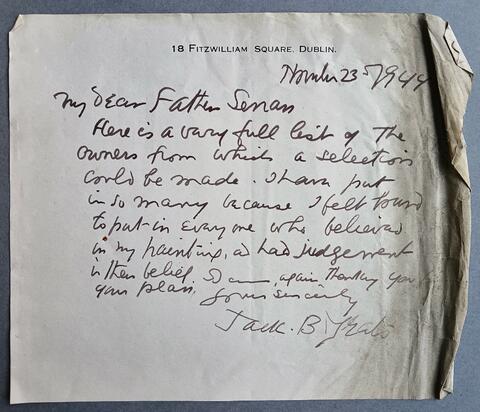 18 FITZWILLIAM SQUARE, DUBLIN.
November 23rd 1944
My Dear Father Senan
Here is a very full list of the
owners from which a selection
could be made. I have put
in so many because I felt bound
to put in everyone who believed
in my painting, and had judgement
in their belief. again thanking you
your plan,
Yours sincerely
Jack. B. Yeats